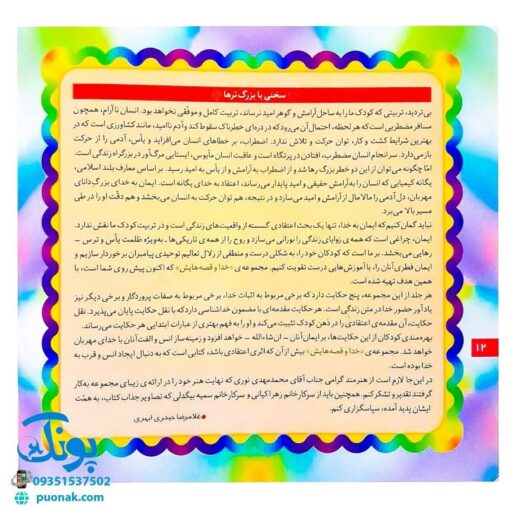 سخنی با بزرگ‌ترها
بی‌تردید، تربیتی که کودک ما را به ساحل آرامش و گوهر امید نرساند، تربیت کامل و موفقی نخواهد بود. انسان ناآرام، همچون
مسافر مضطربی است که هر لحظه، احتمال آن می‌رود که در دره‌ای خطرناک سقوط کند و آدم ناامید، مانند کشاورزی است که در
بهترین شرایط کشت و کار، توان حرکت و تلاش ندارد. اضطراب، بر خطاهای انسان می‌افزاید و یأس، آدمی را از حرکت
باز می‌دارد. سرانجام انسان مضطرب، افتادن در پرتگاه است و عاقبت انسان مأیوس، ایستایی مرگ‌آور در بزرگراه زندگی است.
امّا چگونه می‌توان از این دو خطر بزرگ رها شد و از اضطراب به آرامش و از یأس به امید رسید. بر اساس معارف بلند اسلامی،
یگانه کیمیایی که انسان را به آرامش حقیقی و امید پایدار می‌رساند، اعتقاد به خدای یگانه است. ایمان به خدای بزرگِ دانای
مهربان، دل آدمی را مالامال از آرامش و امید می‌سازد و در نتیجه، هم توان حرکت به انسان می‌بخشد و هم دقّت او را در طی
مسیر بالا می‌برد.
نباید گمان کنیم که ایمان به خدا، تنها یک بحث اعتقادی گسسته از واقعیت‌های زندگی است و در تربیت کودک ما نقش ندارد.
ایمان، چراغی است که همه‌ی زوایای زندگی را نورانی می‌سازد و روح را از همه‌ی تاریکی‌ها ـ به‌ویژه ظلمت یأس و ترس ـ
رهایی می‌بخشد. بر ما است که کودکان خود را، به شکلی درست و منطقی از زلال تعالیم توحیدی پیامبران برخوردار سازیم و
ایمان فطری آنان را، با آموزش‌هایی درست تقویت کنیم. مجموعه‌ی «خدا و قصه‌هایش» که اکنون پیش روی شما است، با
همین هدف تهیه شده است.
هر جلد از این مجموعه، پنج حکایت دارد که برخی مربوط به اثبات خدا، برخی مربوط به صفات پروردگار و برخی دیگر نیز
یادآور حضور خدا در متن زندگی است. هر حکایت مقدمه‌ای با مضمون خداشناسی دارد که با نقل حکایت پایان می‌پذیرد. نقل
حکایت، آن مقدمه‌ی اعتقادی را در ذهن کودک تثبیت می‌کند و او را به فهم بهتری از عبارات ابتدایی هر حکایت می‌رساند.
بهره‌مندی کودکان از این حکایت‌ها، بر ایمان آنان ـ ان‌شاءالله ـ خواهد افزود و زمینه‌ساز انس و الفت آنان با خدای مهربان
خواهد شد. مجموعه‌ی «خدا و قصه‌هایش» بیش از آن که اثری اعتقادی باشد، کتابی است که به دنبال ایجاد انس و قرب به
خدا بوده است.
در این جا لازم است از هنرمند گرامی جناب آقای محمدمهدی نوری که نهایت هنر خود را در ارائه‌ی زیبای مجموعه به‌کار
گرفتند تقدیر و تشکر کنم. همچنین باید از سرکار خانم زهرا کیانی و سرکار خانم سمیه بیگدلی که تصاویر جذاب کتاب، به همّت
ایشان پدید آمده، سپاسگزاری کنم.
غلامرضا حیدری ابهری
۱۲
پونک
09351537502
puonak.com